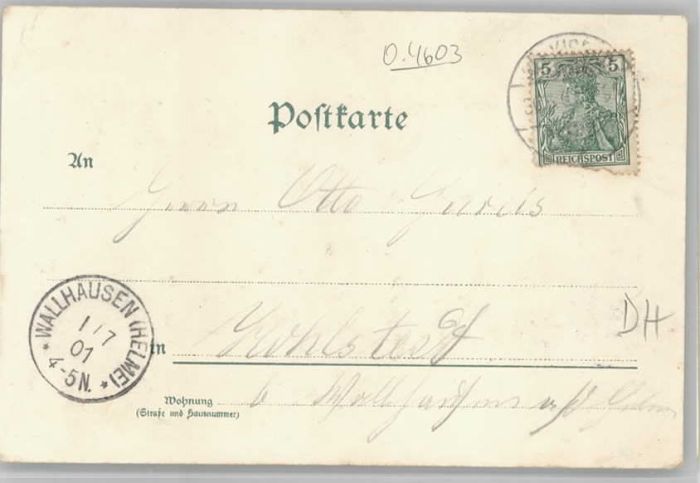 0.4603
5 5
REICHSPOST
Postkarte
An
Herrn Otto
DH
WALLHAUSEN (HELME)
1/7
01
4-5N.
in
Wohnung
(Straße und Hausnummer)
b Wallhausen a/d Helme